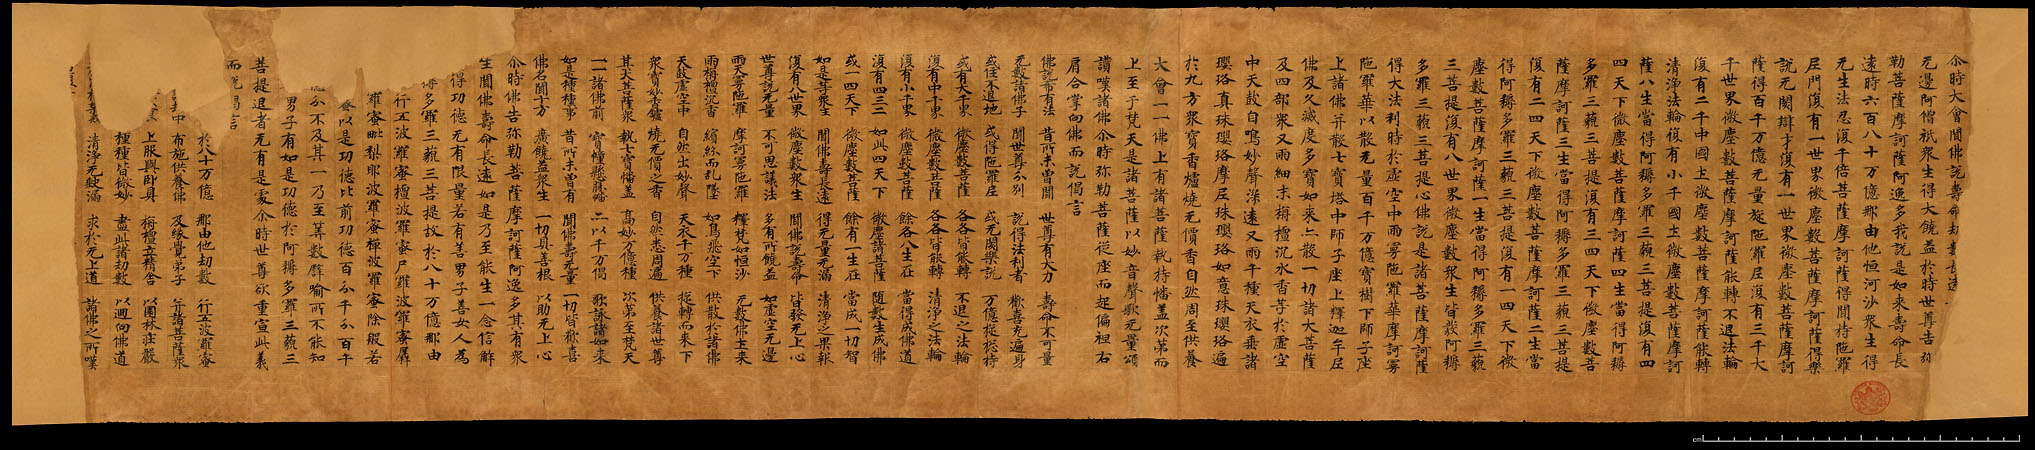 尒時大會聞佛說壽命劫數長遠
无邊阿僧祇衆生得大饒益於時世尊告弥
勒菩薩摩訶薩阿逸多我說是如來壽命長
遠時六百八十万億那由他恒河沙衆生得
无生法忍復千倍菩薩摩訶薩得聞持陁羅
尼門復有一世界微塵數菩薩摩訶薩得樂
說无閡辯才復有一世界微塵數菩薩摩訶
薩得百千万億无量旋陁羅尼復有三千大
千世界微塵數菩薩摩訶薩能轉不退法輪
復有二千中國土微塵數菩薩摩訶薩能轉
清淨法輪復有小千國土微塵數菩薩摩訶
薩八生當得阿耨多羅三藐三菩提復有四
四天下微塵數菩薩摩訶薩四生當得阿耨
多羅三藐三菩提復有三四天下微塵數菩
薩摩訶薩三生當得阿耨多羅三藐三菩提
復有二四天下微塵數菩薩摩訶薩二生當
得阿耨多羅三藐三菩提復有一四天下微
塵數菩薩摩訶薩一生當得阿耨多羅三藐
三菩提復有八世界微塵數衆生皆發阿耨
多羅三藐三菩提心佛說是諸菩薩摩訶薩
得大法利時於虛空中雨曼陁羅華摩訶曼
陁羅華以散无量百千万億寶樹下師子座
上諸佛并散七寶塔中師子座上釋迦牟尼
佛及久滅度多寶如來亦散一切諸大菩薩
及四部衆又雨細末栴檀沉水香等於虛空
中天鼓自鳴妙聲深遠又雨千種天衣垂諸
瓔珞真珠瓔珞摩尼珠瓔珞如意珠瓔珞遍
於九方衆寶香爐燒无價香自然周至供養
大會一一佛上有諸菩薩執持幡蓋次第而
上至于梵天是諸菩薩以妙音聲歌无量頌
讚嘆諸佛尒時弥勒菩薩從座而起偏袒右
肩合掌向佛而說偈言
佛說希有法 昔所未曾聞 世尊有大力 壽命不可量
无數諸佛子 聞世尊分別 說得法利者 歡喜充遍身
或住不退地 或得陁羅尼 或无閡樂說 万億旋捴持
或有大千界 微塵數菩薩 各各皆能轉 不退之法輪
復有中千界 微塵數菩薩 各各皆能轉 清淨之法輪
復有小千界 微塵數菩薩 餘各八生在 當得成佛道
復有四三二 如此四天下 微塵諸菩薩 隨數生成佛
或一四天下 微塵數菩薩 餘有一生在 當成一切智
如是等衆生 聞佛壽長遠 得无量无漏 清淨之果報
復有八世界 微塵數衆生 聞佛說壽命 皆發无上心
世尊說无量 不可思議法 多有所饒益 如虛空无邊
雨天曼陁羅 摩訶曼陁羅 釋梵如恒沙 无數佛土來
雨栴檀沉香 繽紛而亂墜 如鳥飛空下 供散於諸佛
天鼓虛空中 自然出妙聲 天衣千万種 旋轉而來下
衆寶妙香爐 燒无價之香 自然悉周遍 供養諸世尊
其大菩薩衆 執七寶幡蓋 高妙万億種 次第至梵天
一一諸佛前 寶幢懸勝幡 亦以千万偈 歌詠諸如來
如是種種事 昔所未曾有 聞佛壽无量 一切皆歡喜
佛名聞十方 廣饒益衆生 一切具善根 以助无上心
尒時佛告弥勒菩薩摩訶薩阿逸多其有衆
生聞佛壽命長遠如是乃至能生一念信解
得功德无有限量若有善男子善女人爲
得多羅三藐三菩提故於八十万億那由
行五波羅蜜檀波羅蜜尸羅波羅蜜羼
羅蜜毗梨耶波羅蜜禪波羅蜜除般若
以是功德比前功德百分千分百千
分不及其一乃至筭數譬喻所不能知
男子有如是功德於阿耨多羅三藐三
菩提退者无有是處尒時世尊欲重宣此義
而說偈言
於八十万億 那由他劫數 行五波羅蜜
中 布施供養佛 及緣覺弟子 并諸菩薩衆
上服與卧具 栴檀立精舍 以園林莊嚴
種種皆微妙 盡此諸劫數 以迴向佛道
清淨无缺漏 求於无上道 諸佛之所嘆
cm